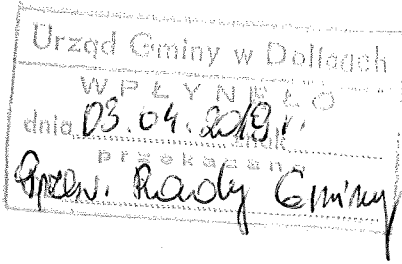 Urząd Gminy w Dołhach
WPŁYNĘŁO
dnia 03.04.2019 r. znak
przekazano
Przew. Rady Gminy